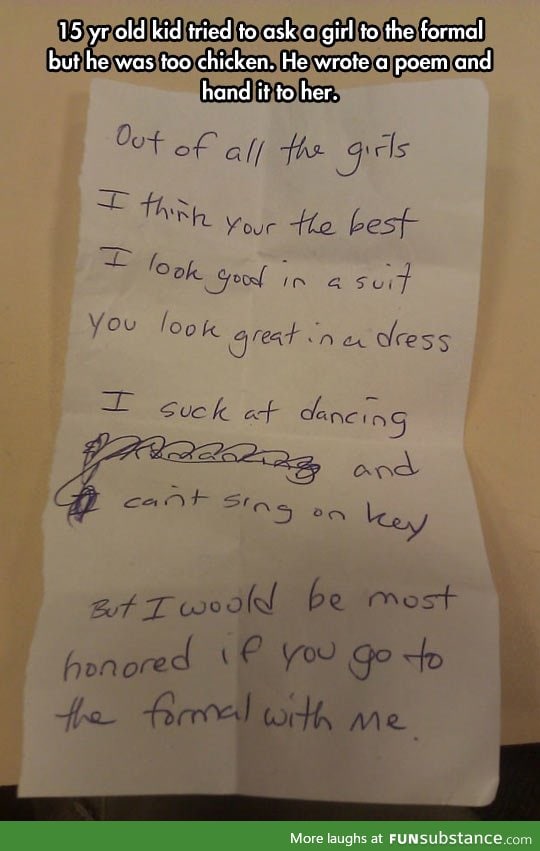 15 yr old kid tried to ask a girl to the formal
but he was too chicken. He wrote a poem and
hand it to her.
Out of all the girls
I think your the best
I look good in a suit
You look great in a dress
I suck at dancing
and
can't sing on key
But I would be most
honored if you go to
the formal with me.
More laughs at FUNsubstance.com